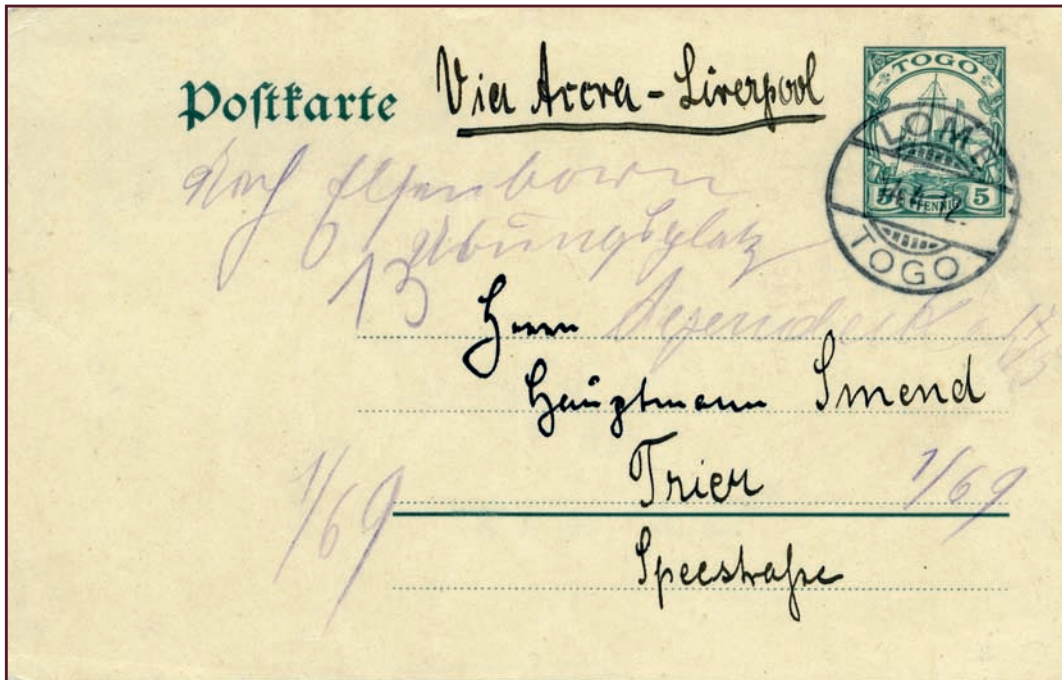 Postkarte
Via Accra - Liverpool
TOGO
5 PFENNIG 5
LOME
TOGO
Nach Elsenborn
Übungsplatz
13
Herrn
Hauptmann Smend
Trier
1/69
1/69
Speestraße